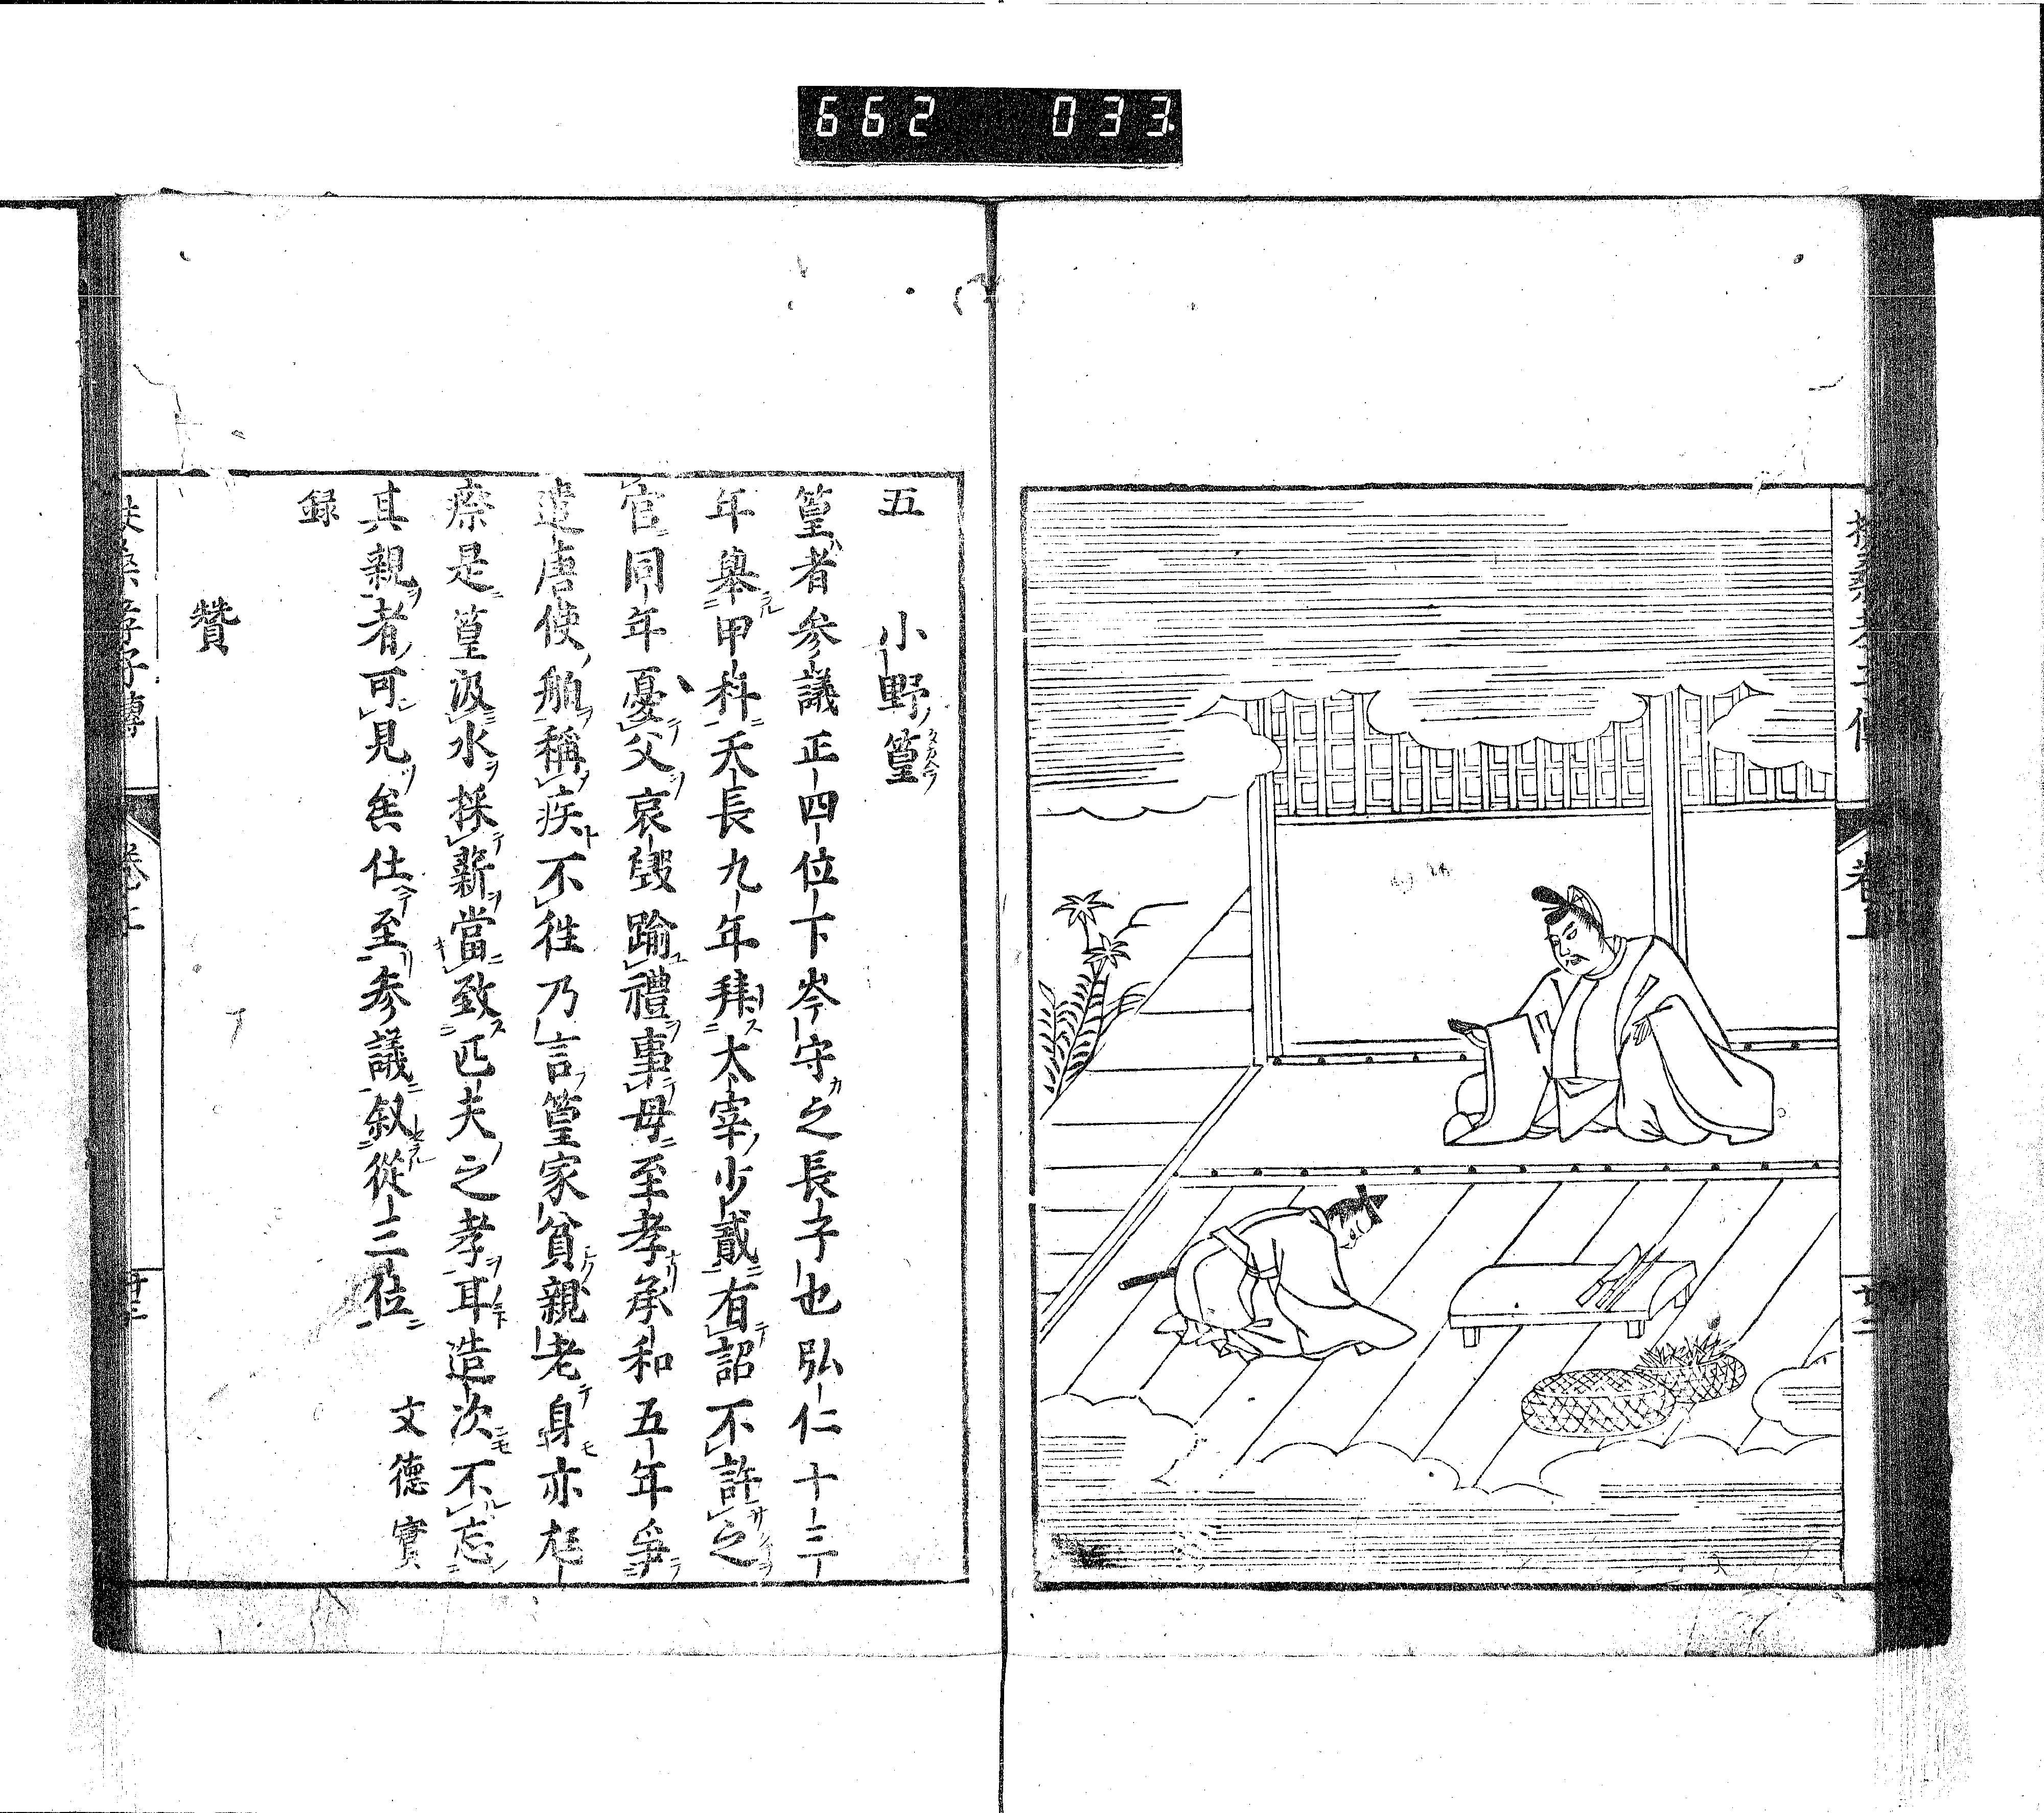 662 033
五 小野篁
篁者参議正四位下岑守之長子也弘仁十三
年舉甲科天長九年拜太宰少貳有詔不許之
官同年憂父哀毀踰禮事母至孝承和五年爭
遣唐使舶稱疾不往乃言篁家貧親老身亦尫
瘵是篁汲水採薪當致匹夫之孝耳造次不忘
其親者可見矣仕至参議叙從三位 文德實
録
贊